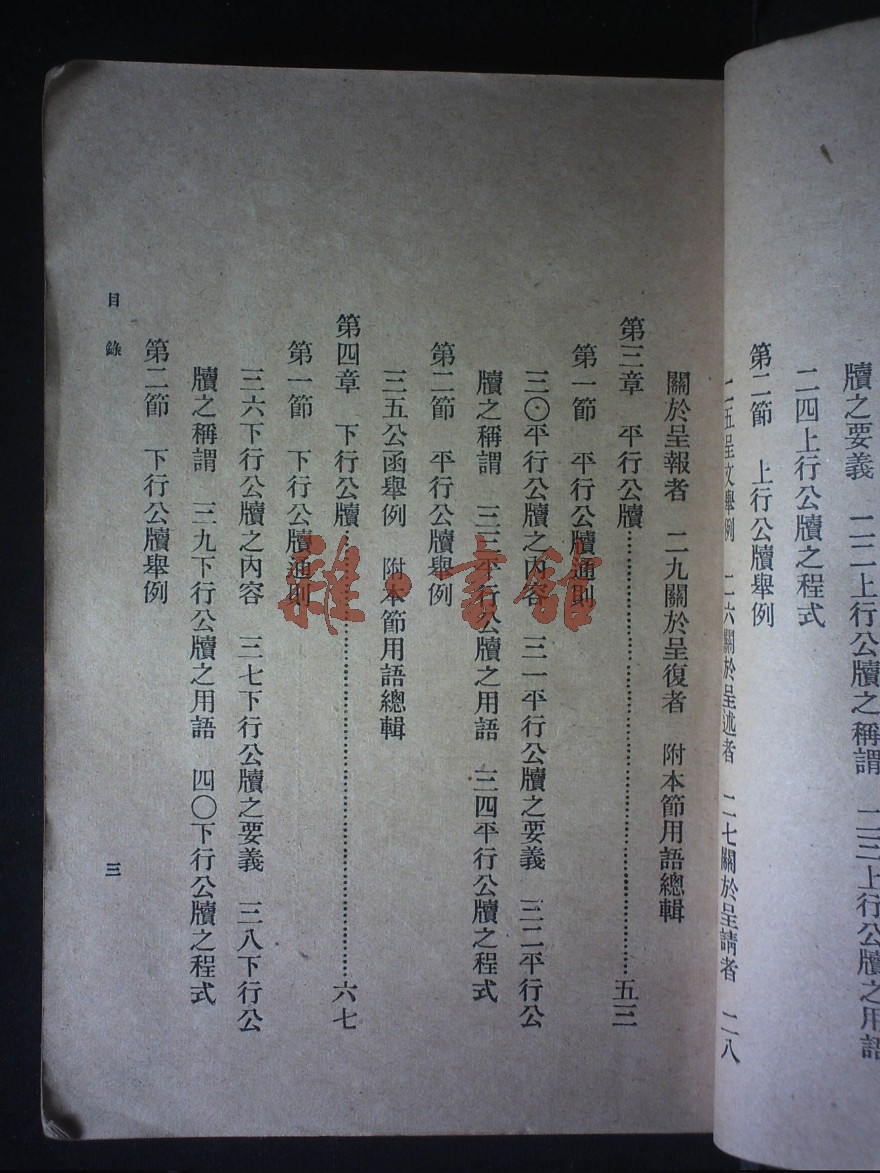 牘之要義　二二上行公牘之稱謂　二三上行公牘之用語
二四上行公牘之程式
第二節　上行公牘舉例
二五呈文舉例　二六關於呈述者　二七關於呈請者　二八
關於呈報者　二九關於呈復者　附本節用語總輯
第三章　平行公牘……五三
第一節　平行公牘通則
三〇平行公牘之內容　三一平行公牘之要義　三二平行公
牘之稱謂　三三平行公牘之用語　三四平行公牘之程式
第二節　平行公牘舉例
三五公函舉例　附本節用語總輯
第四章　下行公牘……六七
第一節　下行公牘通則
三六下行公牘之內容　三七下行公牘之要義　三八下行公
牘之稱謂　三九下行公牘之用語　四〇下行公牘之程式
第二節　下行公牘舉例
目錄　三
雜·書館